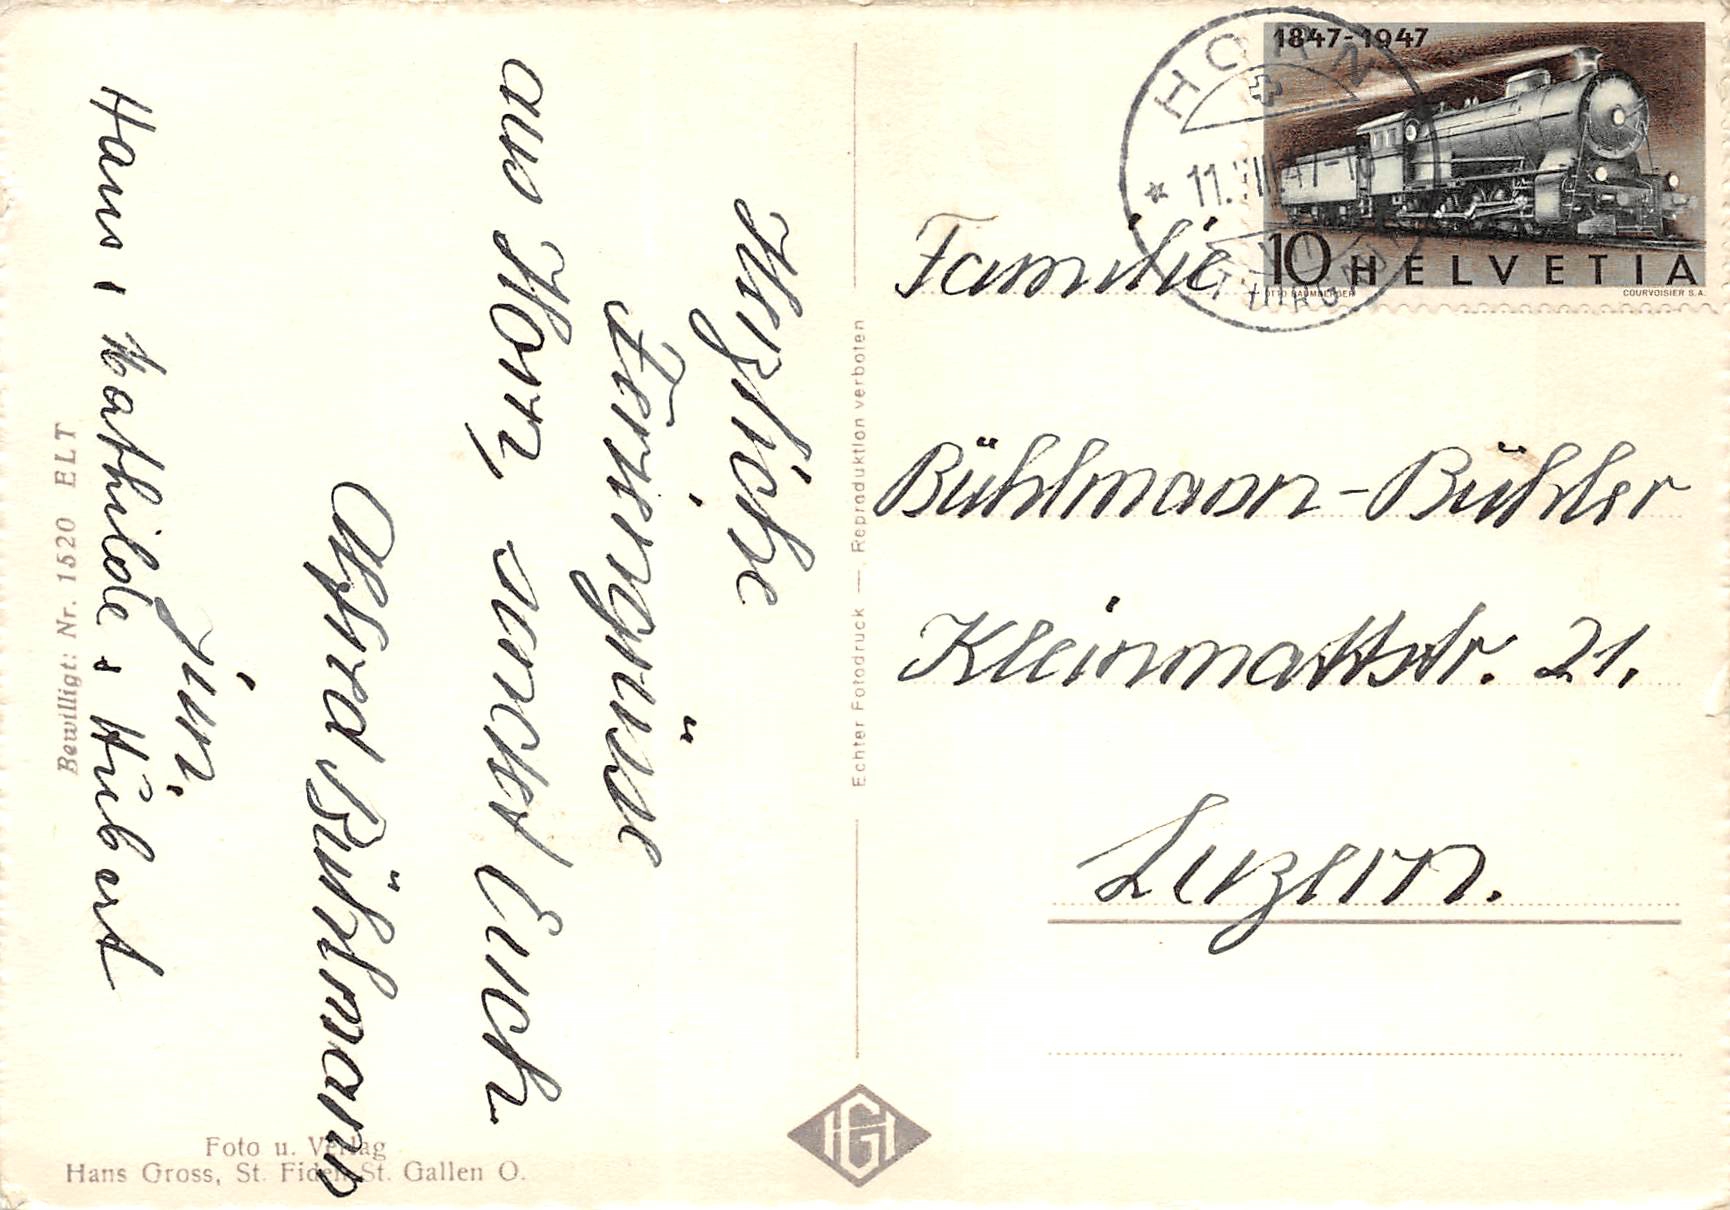 Herzliche
Feriengrüsse
aus Horn, sendet Euch
Alfred Bühlmann
jun.
Hans, Mathilde, Hubert
Bewilligt: Nr. 1520 ELT
Foto u. Verlag
Hans Gross, St. Fiden-St. Gallen O.
Echter Fotodruck — Reproduktion verboten
HG
1847-1947
10 HELVETIA
OTTO BAUMBERGER COURVOISIER S.A.
HORN
(THURGAU)
Familie
Bühlmann-Bühler
Kleinmattstr. 21.
Luzern.